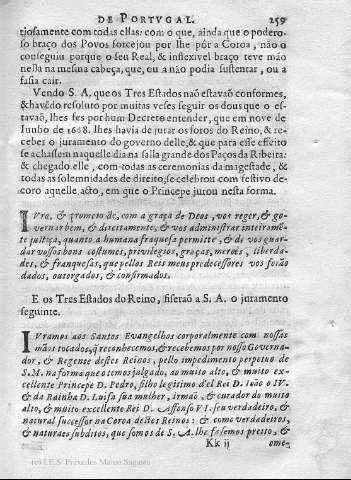 DE PORTVGAL. 259
tiosamente com todas ellas: com o que, ainda que o podero-
so braço dos Povos forcejou por lhe pór a Coroa, não o
conseguiu porque o seu Real, & inflexivel braço teve mão
nella na mesma cabeça, que, ou a não podia sustentar, ou a
fasia cair.
Vendo S. A. que os Tres Estados não estavaõ conformes,
& havẽdo resoluto por muitas veses seguir os dous que o es-
tavaõ, lhes fes por hum Decreto entender, que em nove de
Junho de 1668. lhes havia de jurar os foros do Reino, & re-
ceber o juramento do governo delle, & que para esse effeito
se achassem naquelle dia na salla grande dos Paços da Ribeira:
& chegado elle, com todas as ceremonias da magestade, &
todas as solemnidades de direito, se celebrou com festivo de-
coro aquelle acto, em que o Principe jurou nesta forma.
IVro, & prometo de, com a graça de Deos, vos reger, & go-
vernar bem, & direitamente, & vos administrar inteiramẽ-
te justiça, quanto a humana fraquesa permitte, & de vos guar-
dar vossos bons costumes, privilegios, graças, mercès, liberda-
des, & franquesas, que pellos Reis meus predecessores vos foraõ
dados, outorgados, & confirmados.
E os Tres Estados do Reino, fiseraõ a S. A. o juramento
seguinte.
IVramos aos Santos Evangelhos corporalmente com nossas
mãos tocados, q̃ reconhecemos, & recebemos por nosso Governa-
dor, & Regente destes Reinos, pello impedimento perpetuo de
S. M. na forma que o temos julgado, ao muito alto, & muito ex-
cellente Princepe D. Pedro, filho legitimo d'el Rei D. Ioão o IV.
& da Rainha D. Luisa sua mulher, irmaõ, & curador do muito
alto, & muito excellente Rei D. Affonso VI. seu verdadeiro, &
natural successor na Coroa destes Reinos: & como verdadeiros,
& naturaes subditos, que somos de S. A. lhe fasemos preito, &
Kk ij ome-
(c) I.E.S. Práxedes Mateo Sagasta